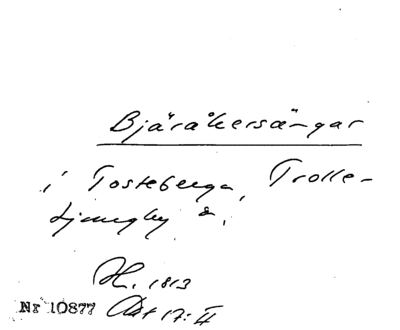 Bjäråkersängar
i Tosteberga, Trolle-
Ljungby s.
H. 1813
Nr 10877 Akt 17: II